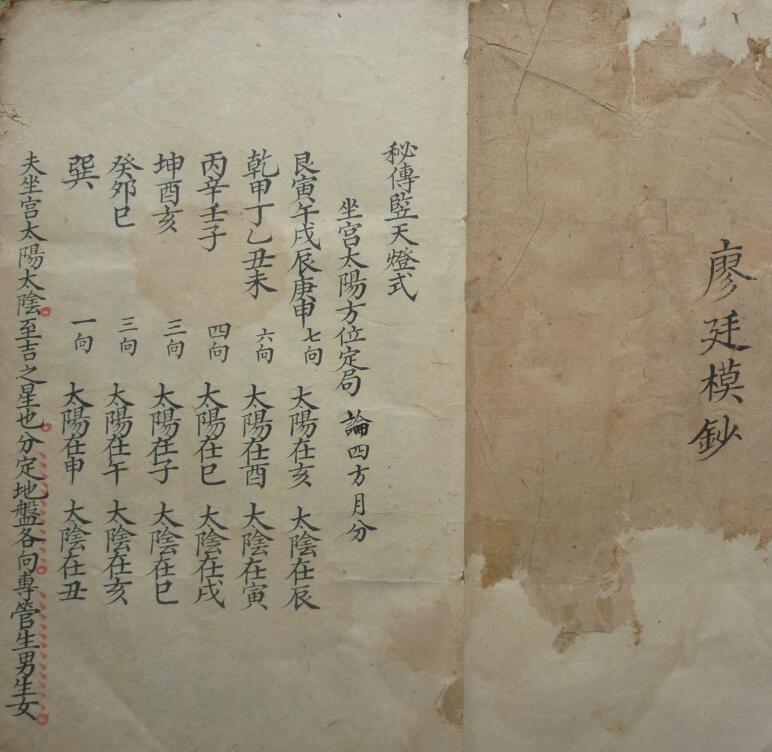 廖廷模鈔
秘傳竪天燈式
坐宮太陽方位定局 論四方月分
艮寅午戌辰庚申 七向 太陽在亥 太陰在辰
乾甲丁乙丑未 六向 太陽在酉 太陰在寅
丙辛壬子 四向 太陽在巳 太陰在戌
坤酉亥 三向 太陽在子 太陰在巳
癸卯巳 三向 太陽在午 太陰在亥
巽 一向 太陽在申 太陰在丑
夫坐宮太陽太陰至吉之星也分定地盤各向專管生男生女